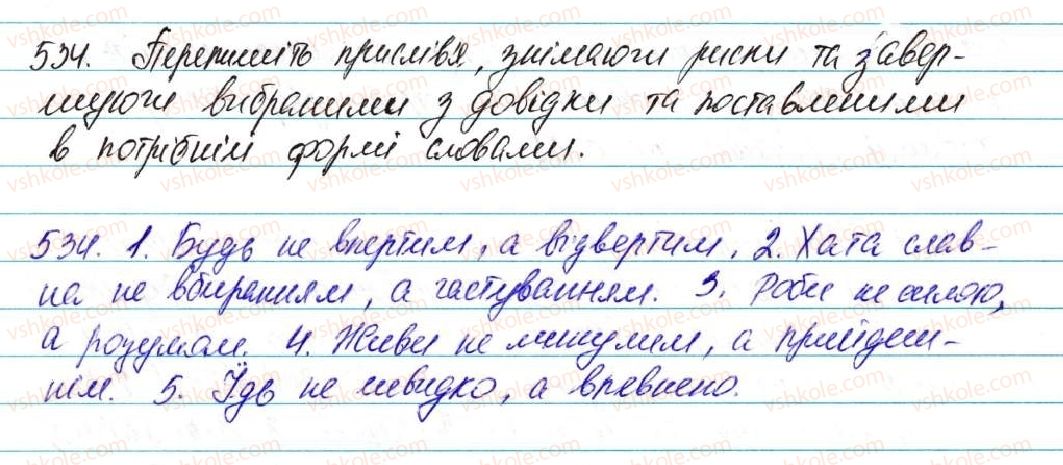 534. Перепишіть прислів'я, знімаючи риски та завер-
шуючи вибраними з довідки та поставленими
в потрібній формі словами.
534. 1. Будь не впертим, а відвертим. 2. Хата слав-
на не вбиранням, а гостуванням. 3. Роби не силою,
а розумом. 4. Живи не минулим, а прийдеш-
нім. 5. Їдь не швидко, а впевнено.